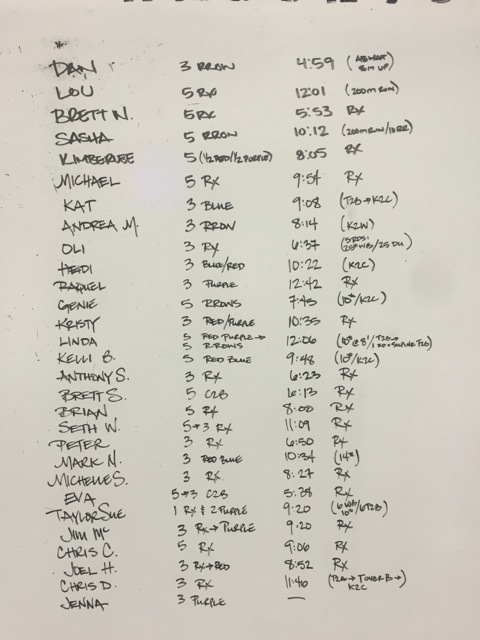 DAN 3 RROW 4:59
LOU 5 RX 12:01 (200M RUN)
BRETT N. 5 RX 5:53 RX
SASHA 5 RROW 10:12 (200M RUN/10 RR)
KIMBERLEE 5 (1/2 RED/1/2 PURPLE) 8:05 RX
MICHAEL 5 RX 9:54 RX
KAT 3 BLUE 9:08 (T2B→K2C)
ANDREA M. 3 RROW 8:14 (K2W)
OLI 3 RX 6:37
HEIDI 3 BLUE/RED 10:22 (K2C)
RAQUEL 3 PURPLE 12:42 RX
GENIE 5 RROWS 7:43 (10#/K2C)
KRISTY 3 RED/PURPLE 10:35 RX
LINDA 5 RED PURPLE→ 5 RROWS 12:06
KELLI B. 5 RED BLUE 9:48 (10#/K2C)
ANTHONY S. 3 RX 6:23 RX
BRETT S. 5 C2B 6:13 RX
BRIAN 5 RX 8:00 RX
SETH W. 5→3 RX 11:09 RX
PETER 3 RX 6:50 RX
MARK N. 3 RED BLUE 10:34 (14#)
MICHELLE S. 3 RX 8:27 RX
EVA 5→3 C2B 5:38 RX
TAYLOR SUE 1 RX & 2 PURPLE 9:20
JIM Mc 3 RX→PURPLE 9:20 RX
CHRIS C. 5 RX 9:06 RX
JOEL H. 3 RX→RED 8:52 RX
CHRIS D. 3 RX 11:46
JENNA 3 PURPLE —